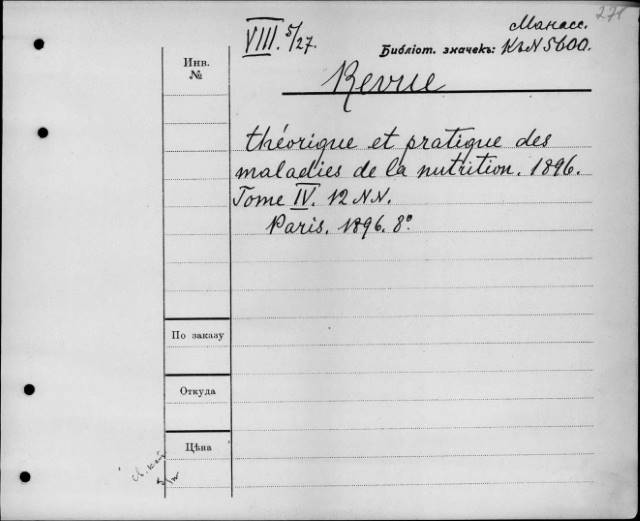 271
Манасс.
VIII. 5/27.
Библіот. значекъ: КъN 5600.
Инв. №
Revue
théorique et pratique des
maladies de la nutrition. 1896.
Tome IV. 12 NN.
Paris. 1896. 8°
По заказу
Откуда
Цѣна